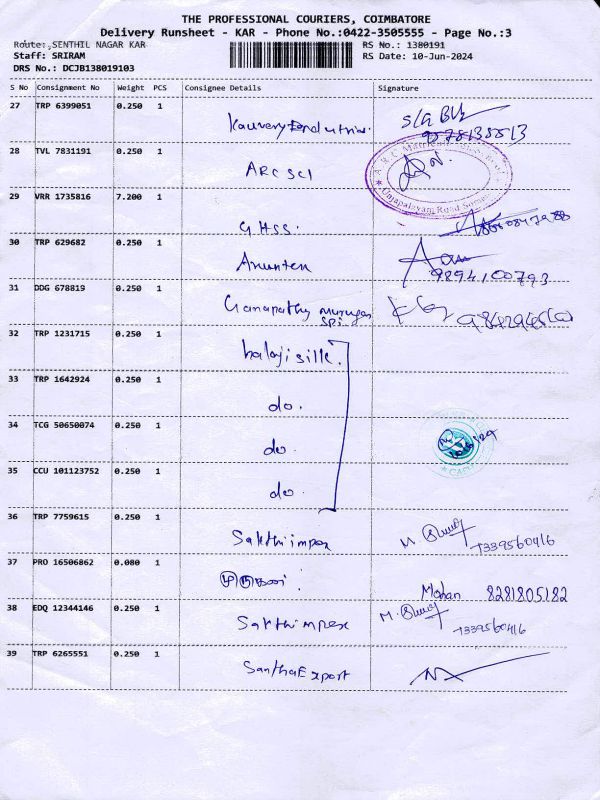 THE PROFESSIONAL COURIERS, COIMBATORE
Delivery Runsheet - KAR - Phone No.:0422-3505555 - Page No.:3
Route: SENTHIL NAGAR KAR RS No.: 1380191
Staff: SRIRAM RS Date: 10-Jun-2024
DRS No.: DCJB138019103
S No Consignment No Weight PCS Consignee Details Signature
27 TRP 6399051 0.250 1 Kauvery Industries.
28 TVL 7831191 0.250 1 ARC SCI
29 VRR 1735816 7.200 1 GHSS.
30 TRP 629682 0.250 1 9894100793
31 DDG 678819 0.250 1 Ganapathy murugan
32 TRP 1231715 0.250 1 balaji silk.
33 TRP 1642924 0.250 1 do.
34 TCG 50650074 0.250 1 do.
35 CCU 101123752 0.250 1 do.
36 TRP 7759615 0.250 1 Sakthi impex 7339560416
37 PRO 16506862 0.080 1 முருகன் Mohan 8281805182
38 EDQ 12344146 0.250 1 Sakthimpex 7339560416
39 TRP 6265551 0.250 1 Santha Export